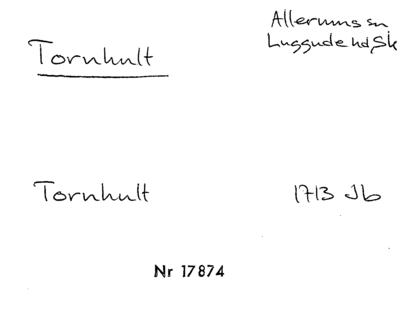 Tornhult
Allerums sn
Luggude hd Sk
Tornhult
1713 Jb
Nr 17874